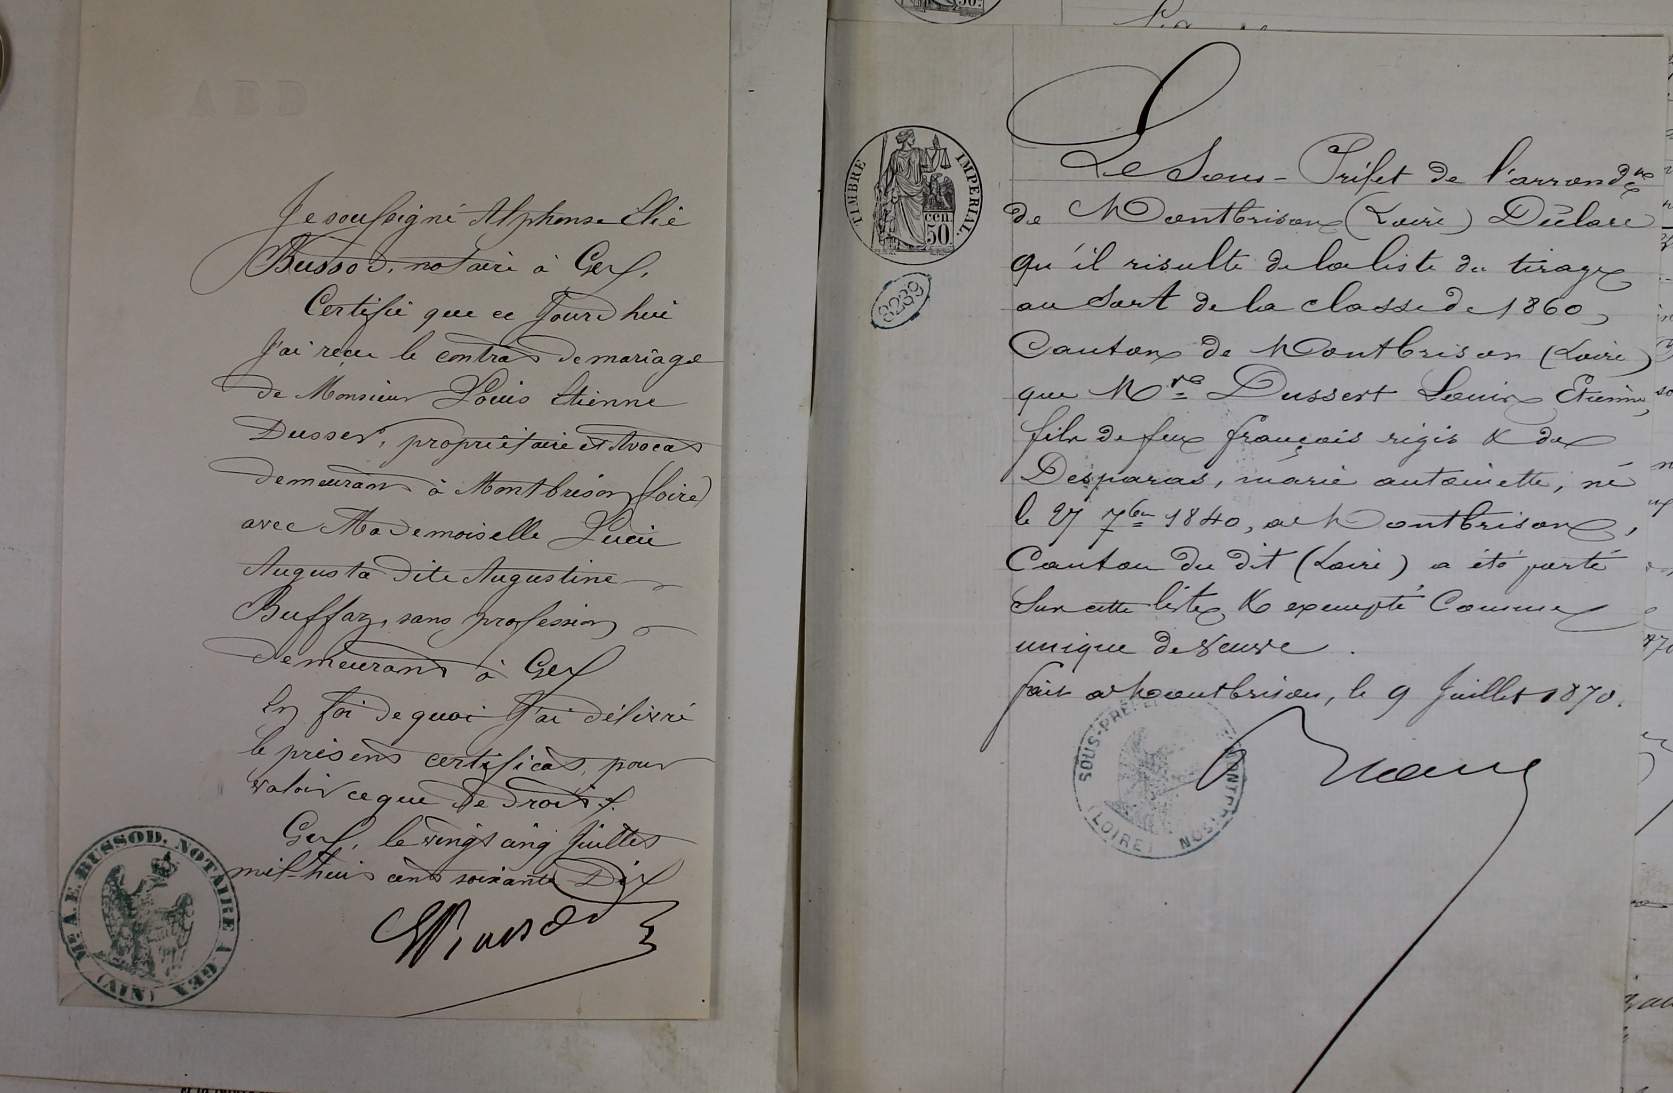 Je soussigné Alphonse Elie
Bussod, notaire à Gex,
Certifie que ce Jourd'hui
J'ai reçu le contrat de mariage
de Monsieur Louis Etienne
Dussert, propriétaire et Avocat
demeurant à Montbrison (Loire)
avec Mademoiselle Lucie
Augusta dite Augustine
Buffaz, sans profession
demeurant à Gex
En foi de quoi J'ai délivré
le présent certificat, pour
valoir ce que de droit.
Gex, le vingt cinq Juillet
mil-huit cent soixante Dix
Me. A. E. BUSSOD. NOTAIRE A GEX (AIN)
TIMBRE IMPERIAL.
50 cen
3289
Le Sous-Préfet de l'arrondt
de Montbrison (Loire) Déclare
qu'il résulte de la liste du tirage
au Sort de la classe de 1860,
Canton de Montbrison (Loire)
que Mr Dussert Louis Etienne,
fils de feu françois régis & de
Desparas, marie antoinette, né
le 27 7bre 1840, à Montbrison,
Canton du dit (Loire) a été porté
Sur cette liste & exempté Comme
unique de veuve.
fait à Montbrison, le 9 Juillet 1870.
SOUS-PRÉFECTURE MONTBRISON (LOIRE)